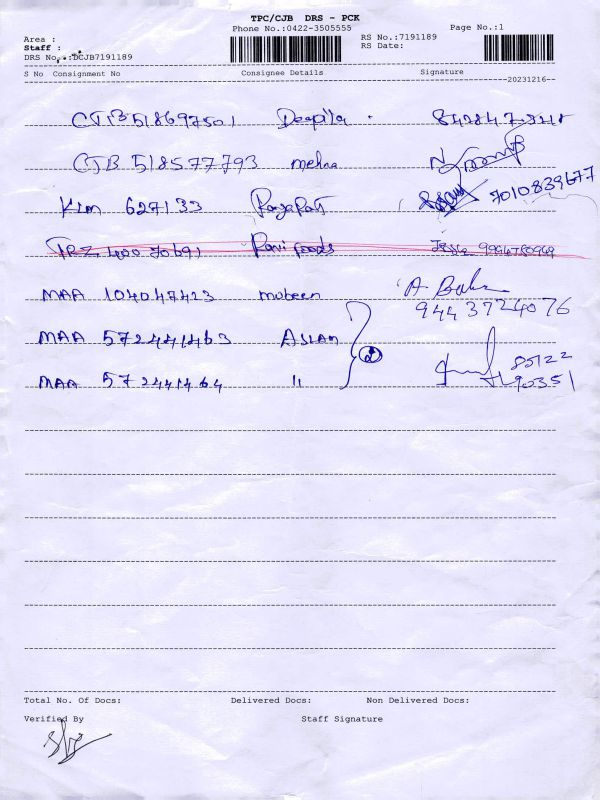 TPC/CJB DRS - PCK
Phone No.:0422-3505555
Page No.:1
Area :
Staff :
DRS No.:DCJB7191189
RS No.:7191189
RS Date:
S No Consignment No Consignee Details Signature
20231216
CJB 518697501 Deepika 842847
CJB 518577793 mehaa
KIM 627133 7010839677
TRZ 400 70691 Ravi foods
MAA 104047423 mubeen A. Babu
9443724076
MAA 572441463 ASLAM
2
85122
MAA 572441464 11 90351
Total No. Of Docs: Delivered Docs: Non Delivered Docs:
Verified By Staff Signature